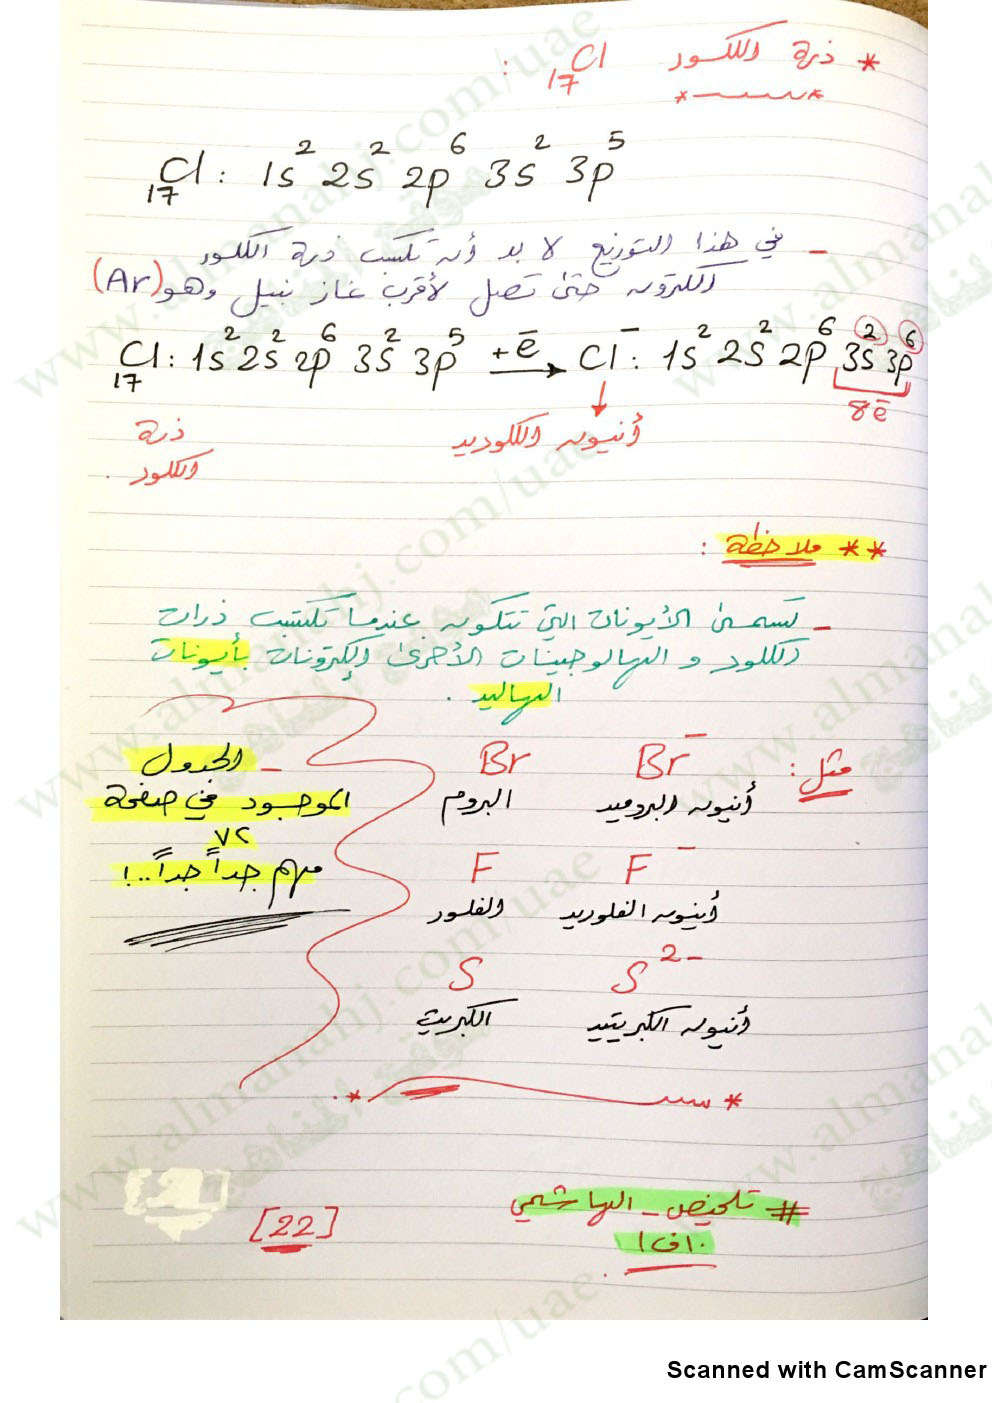 * ذرة الكلور ₁₇Cl :
₁₇Cl : 1s² 2s² 2p⁶ 3s² 3p⁵
- في هذا التوزيع لا بد أن تكسب ذرة الكلور
إلكترون حتى تصل لأقرب غاز نبيل وهو (Ar)
₁₇Cl : 1s² 2s² 2p⁶ 3s² 3p⁵ +e⁻ → Cl⁻ : 1s² 2s² 2p⁶ 3s² 3p⁶
8e⁻
أنيون الكلوريد
ذرة
الكلور
** ملاحظة :
- تسمى الأيونات التي تتكون عندما تكتسب ذرات
الكلور و الهالوجينات الأخرى إلكترونات بأيونات
الهاليد .
مثل : Br⁻ Br
أنيون البروميد البروم
F⁻ F
أنيون الفلوريد الفلور
S²⁻ S
أنيون الكبريتيد الكبريت
- الجدول
الموجود في صفحة
٧٢
مهم جداً جداً..!
# تلخيص - الهاشمي
١٠ف١
[22]
www.almanahj.com/uae
موقع المناهج
Scanned with CamScanner